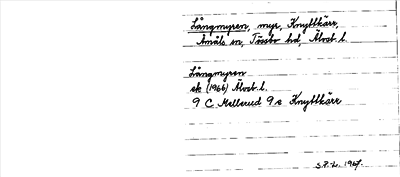 Långmyren, myr, Knyttkärr,
Åmåls sn, Tössbo hd, Älvsb. l.
Långmyren
ek (1966) Älvsb. l.
9 C Mellerud 9 e Knyttkärr
S.P.L. 1967.